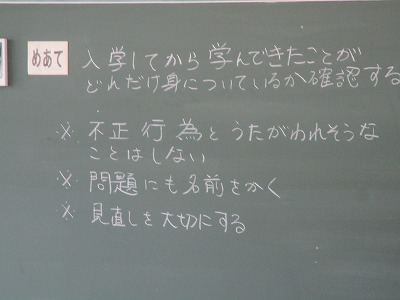 めあて 入学してから学んできたことが
どれだけ身についているか確認する
※ 不正行為とうたがわれそうな
ことはしない
※ 問題にも名前をかく
※ 見直しを大切にする